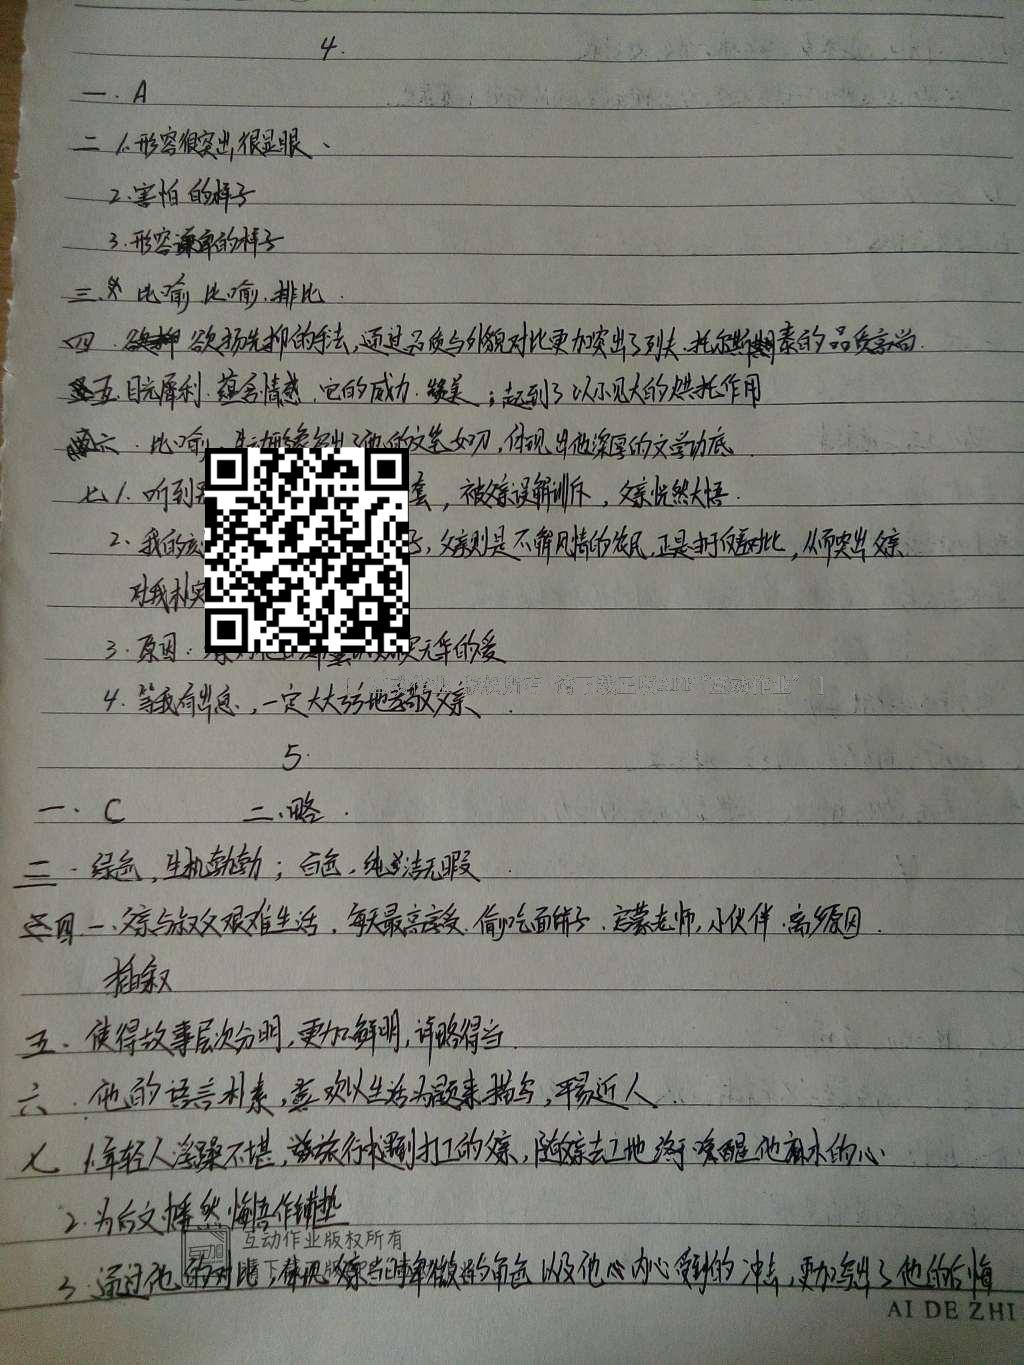 4.
一. A
二 1.形容很突出,很显眼、
2.害怕的样子
3.形容谦卑的样子
三. 比喻 比喻.排比.
四. 欲扬先抑的手法,通过品质与外貌对比更加突出了列夫.托尔斯泰的品质高尚.
五.目光犀利.蕴含情感.它的威力.;起到了以小见大的烘托作用
六.比喻,生动形象写出了他的文笔如刀,体现出他深厚的文学功底.
七1.听到 套,被父亲误解训斥,父亲恍然大悟.
2.我的 ,父亲则是不解风情的农民,正是由于对比,从而突出父亲
对我朴实
3.原因: 的爱
4.等我有出息,一定大大方方地孝敬父亲.
5.
一. C 二.略.
三.绿色,生机勃勃;白色.纯洁无瑕
四.一.父亲与叔父艰难生活.每天最高享受.偷吃面铺子.启蒙老师,小伙伴.离乡原因.
插叙
五.使得故事层次分明,更加鲜明,详略得当.
六.他的语言朴素,喜欢以生活为题来描写,平易近人.
七 1.年轻人淫躁不堪,旅行遇到打工的父亲,随父亲去工地终于唤醒他麻木的心
2.为后文幡然悔悟作铺垫
互动作业版权所有
3.通过他的对比,体现父亲当时卑微的角色以及他心内心受到的冲击,更加写出了他的后悔
AI DE ZHI